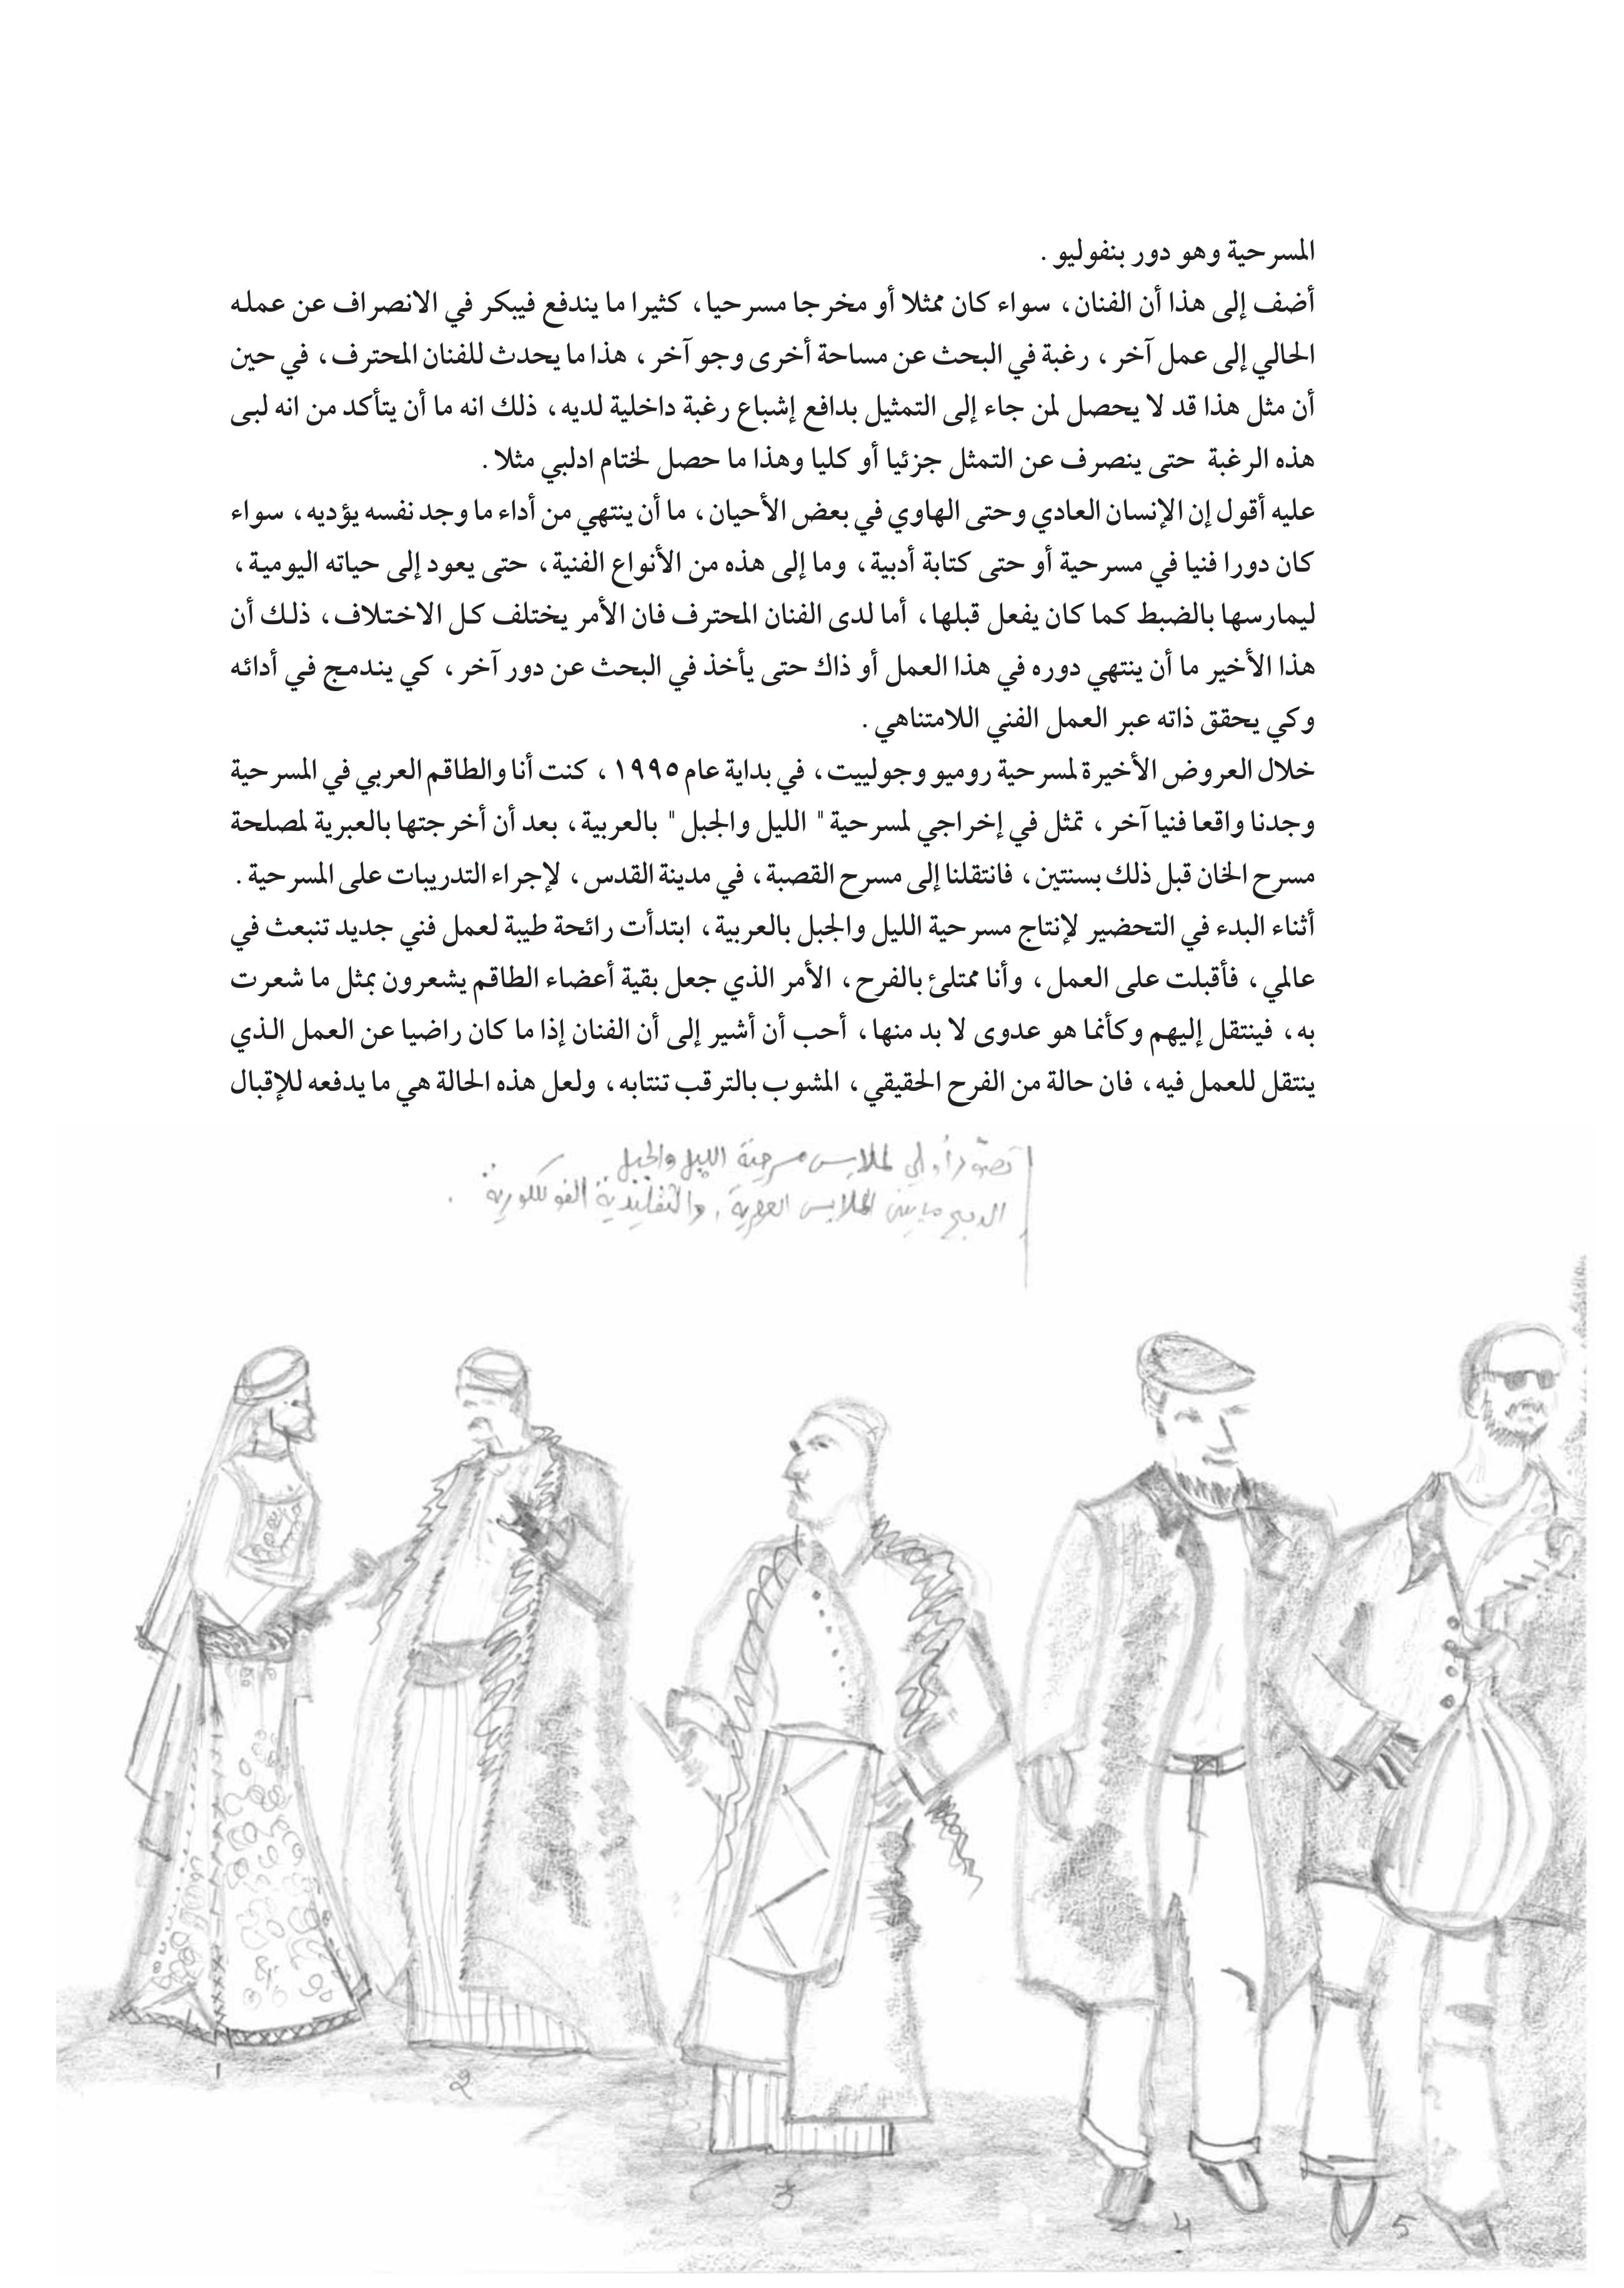 المسرحية وهو دور بنفوليو .
أضف إلى هذا أن الفنان، سواء كان ممثلا أو مخرجا مسرحيا، كثيرا ما يندفع فيبكر في الانصراف عن عمله
الحالي إلى عمل آخر ، رغبة في البحث عن مساحة أخرى وجو آخر ، هذا ما يحدث للفنان المحترف، في حين
أن مثل هذا قد لا يحصل لمن جاء إلى التمثيل بدافع إشباع رغبة داخلية لديه، ذلك انه ما أن يتأكد من انه لبى
هذه الرغبة حتى ينصرف عن التمثل جزئيا أو كليا وهذا ما حصل لختام ادلبي مثلا .
عليه أقول إن الإنسان العادي وحتى الهاوي في بعض الأحيان، ما أن ينتهي من أداء ما وجد نفسه يؤديه، سواء
كان دورا فنيا في مسرحية أو حتى كتابة أدبية، وما إلى هذه من الأنواع الفنية، حتى يعود إلى حياته اليومية،
ليمارسها بالضبط كما كان يفعل قبلها، أما لدى الفنان المحترف فان الأمر يختلف كل الاختلاف، ذلك أن
هذا الأخير ما أن ينتهي دوره في هذا العمل أو ذاك حتى يأخذ في البحث عن دور آخر ، كي يندمج في أدائه
وكي يحقق ذاته عبر العمل الفني اللامتناهي .
خلال العروض الأخيرة لمسرحية روميو وجولييت، في بداية عام ١٩٩٥ ، كنت أنا والطاقم العربي في المسرحية
وجدنا واقعا فنيا آخر ، تمثل في إخراجي لمسرحية " الليل والجبل " بالعربية، بعد أن أخرجتها بالعبرية لمصلحة
مسرح الخان قبل ذلك بسنتين، فانتقلنا إلى مسرح القصبة، في مدينة القدس، لإجراء التدريبات على المسرحية .
أثناء البدء في التحضير لإنتاج مسرحية الليل والجبل بالعربية، ابتدأت رائحة طيبة لعمل فني جديد تنبعث في
عالمي، فأقبلت على العمل، وأنا ممتلئ بالفرح، الأمر الذي جعل بقية أعضاء الطاقم يشعرون بمثل ما شعرت
به، فينتقل إليهم وكأنما هو عدوى لا بد منها، أحب أن أشير إلى أن الفنان إذا ما كان راضيا عن العمل الذي
ينتقل للعمل فيه، فان حالة من الفرح الحقيقي، المشوب بالترقب تنتابه، ولعل هذه الحالة هي ما يدفعه للإقبال
تصوّر أولي لملابس مسرحية الليل والجبل
الدمج ما بين الملابس العصرية، والتقليدية الفولكلورية .
1
2
3
4
5